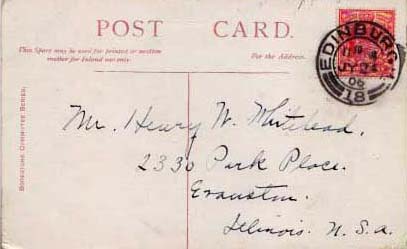 POST CARD.
This Space may be used for printed or written
matter for Inland use only.
For the Address.
EDINBURGH
06
18
Mr. Henry W. Whitehead,
2330 Park Place.
Evanston.
Illinois. U. S. a.